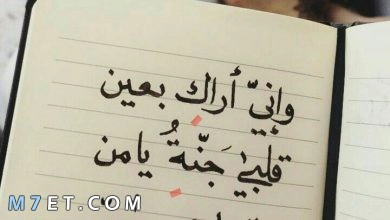 وإنيّ أراك بعين
قلبيْ جَنّةُ يامن
M7ET.COM